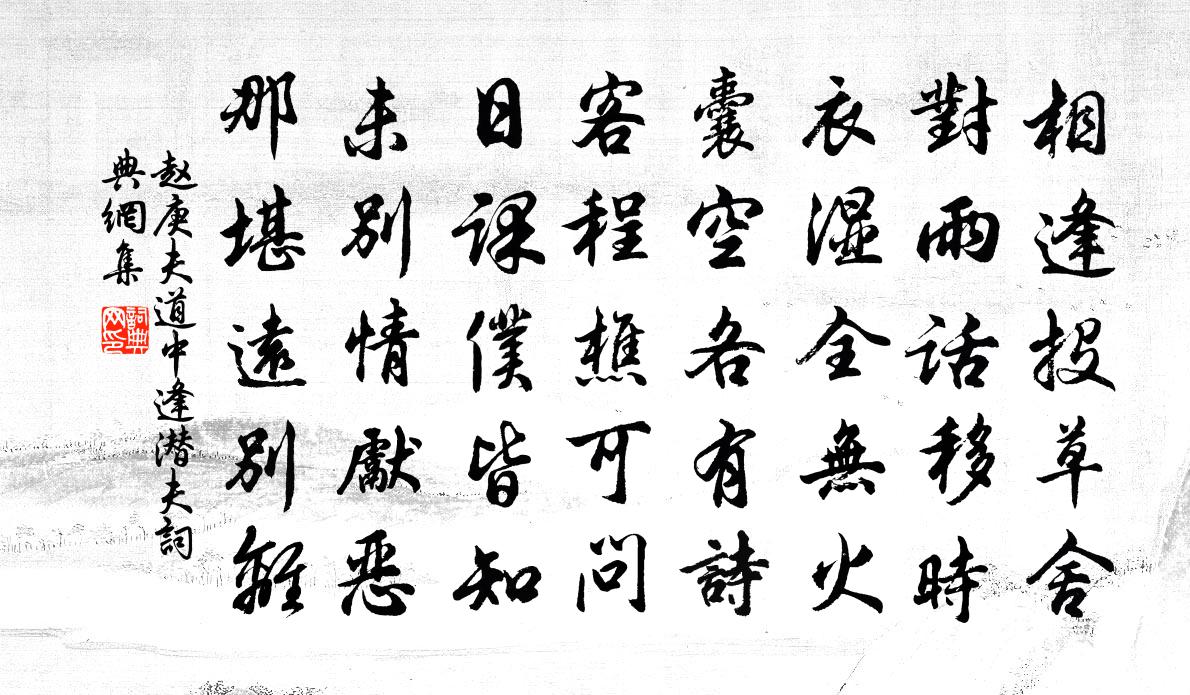 相逢投草舍
對雨話移時
衣湿全無火
囊空各有詩
客程樵可問
日課僕皆知
未別情獻惡
那堪遠別離
赵庚夫道中逢潜夫詞
典網集
詞典
网印